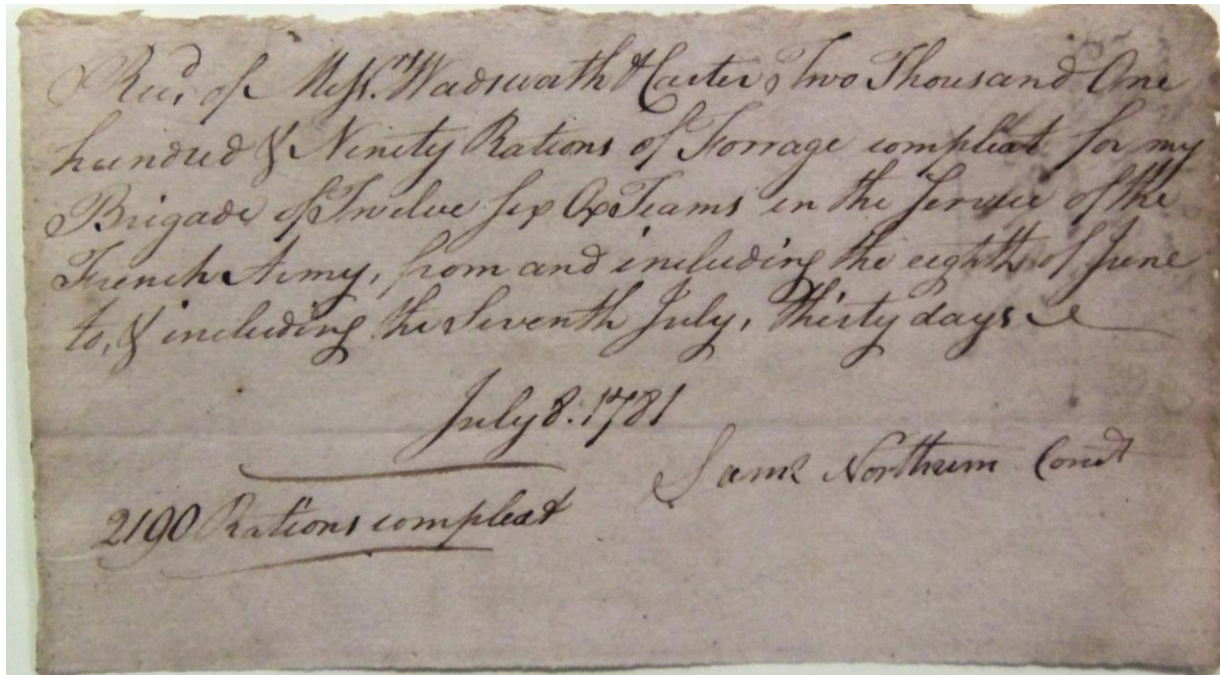 Rec.d of Mess.rs Wadswath & Carter Two Thousand One
hundred & Ninety Rations of Forrage compleat for my
Brigade of Twelve Six Ox Teams in the Service of the
French Army, from and including the eighth of June
to, & including the Seventh July, thirty days
July 8. 1781
Saml Northum Condt
2190 Rations compleat